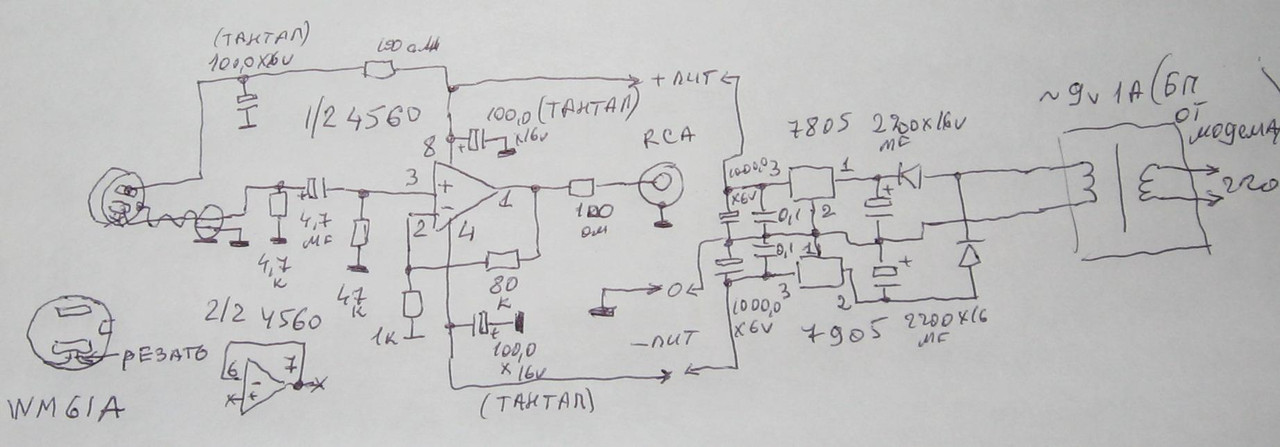 (ТАНТАЛ)
100,0X6V
100 ом
1/2 4560
100,0 (ТАНТАЛ)
X16V
+ПИТ
RCA
8
3
+
-
2
1
4
4,7
MF
4,7
К
47
К
80
К
1К
100
ом
100,0
X
16V
(ТАНТАЛ)
-ПИТ
0
2/2 4560
6
7
-
+
РЕЗАТЬ
WM61A
7805
2200X16V
MF
1000,0
X6V
3
1
2
0,1
0,1
1
3
2
1000,0
X6V
7905
2200X16
MF
+
+
~9V 1A (БП
ОТ
МОДЕМА
220